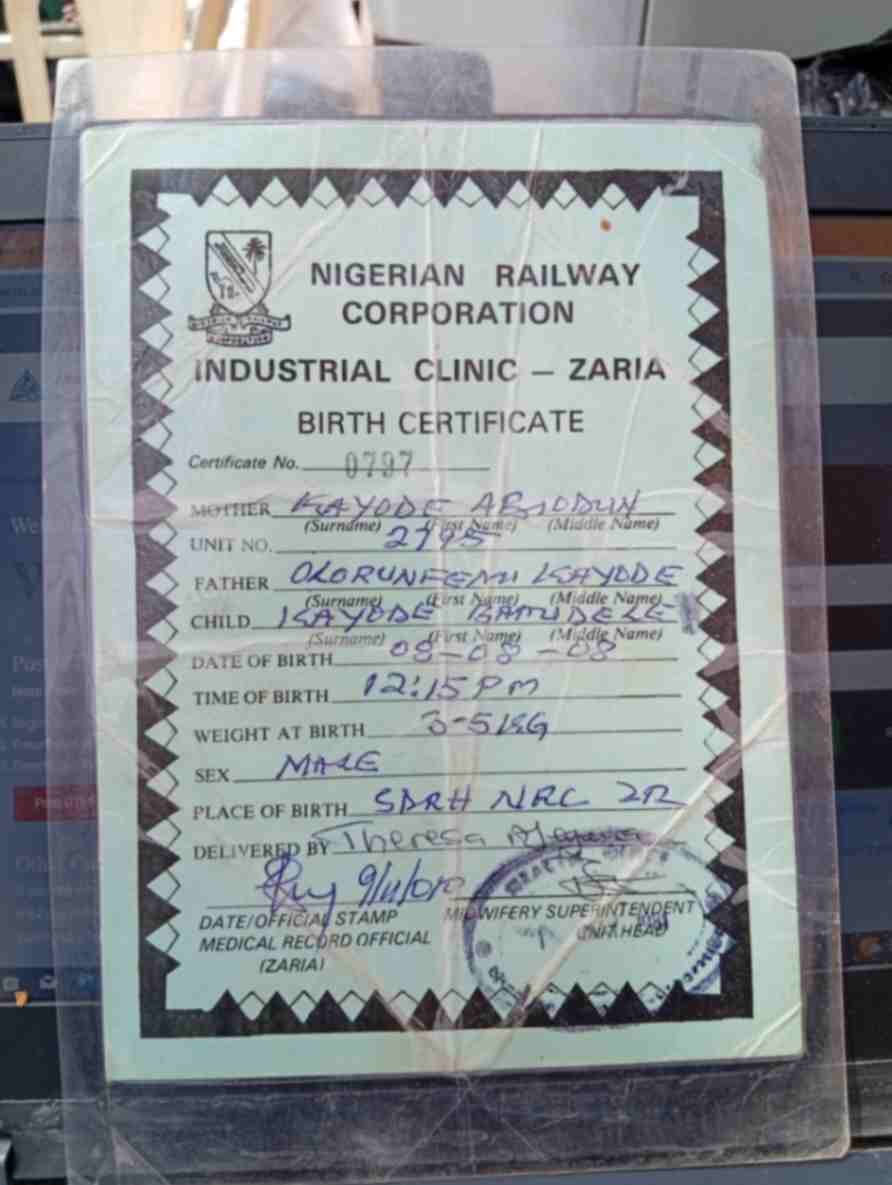 NIGERIAN RAILWAY
CORPORATION
INDUSTRIAL CLINIC – ZARIA
BIRTH CERTIFICATE
Certificate No. 0797
MOTHER KAYODE ABIODUN
(Surname) (First Name) (Middle Name)
UNIT NO. 2795
FATHER OLORUNFEMI KAYODE
(Surname) (First Name) (Middle Name)
CHILD KAYODE BAMIDELE
(Surname) (First Name) (Middle Name)
DATE OF BIRTH 08-08-08
TIME OF BIRTH 12:15 PM
WEIGHT AT BIRTH 3-5KG
SEX MALE
PLACE OF BIRTH SDRH NRC ZR
DELIVERED BY Theresa
DATE/OFFICIAL STAMP
MEDICAL RECORD OFFICIAL
(ZARIA)
MIDWIFERY SUPERINTENDENT
UNIT HEAD